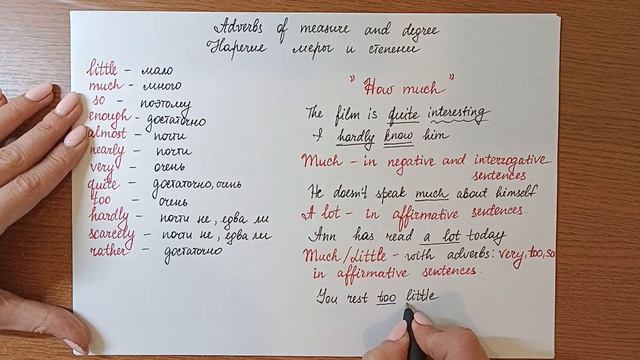 Adverbs of measure and degree
Наречие меры и степени
little – мало
much – много
so – поэтому
enough – достаточно
almost – почти
nearly – почти
very – очень
quite – достаточно, очень
too – очень
hardly – почти не, едва ли
scarcely – почти не, едва ли
rather – достаточно
"How much"
The film is quite interesting
I hardly know him
Much – in negative and interrogative
sentences.
He doesn't speak much about himself
A lot – in affirmative sentences.
Ann has read a lot today
Much/Little – with adverbs: very, too, so
in affirmative sentences.
You rest too little